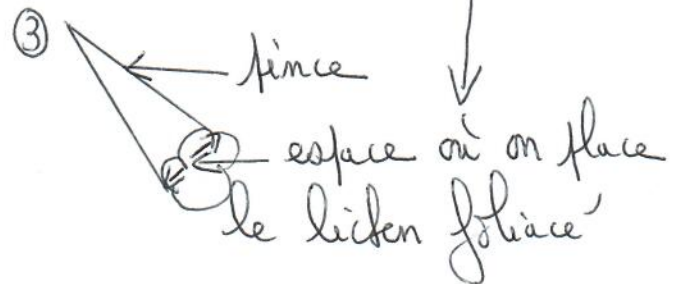 ③
pince
espace où on place
le lichen foliacé